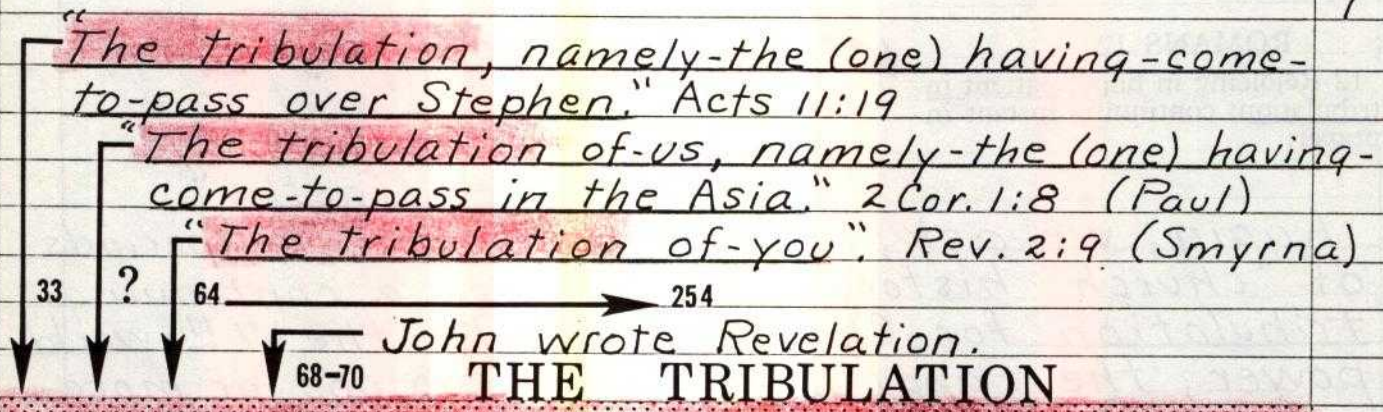 "The tribulation, namely-the (one) having-come-
to-pass over Stephen." Acts 11:19
"The tribulation of-us, namely-the (one) having-
come-to-pass in the Asia." 2 Cor. 1:8 (Paul)
"The tribulation of-you". Rev. 2:9 (Smyrna)
33 ? 64 254
John wrote Revelation.
68-70 THE TRIBULATION